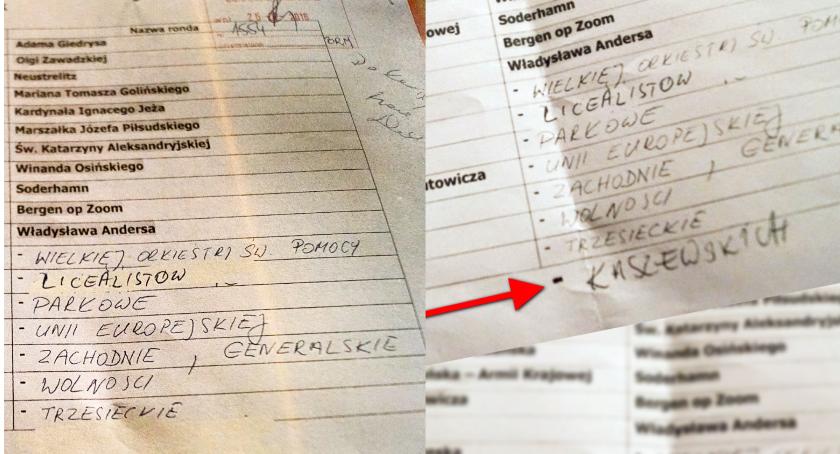 Nazwa ronda
1554
Adama Giedrysa
Olgi Zawadzkiej
Neustrelitz
Mariana Tomasza Golińskiego
Kardynała Ignacego Jeża
Marszałka Józefa Piłsudskiego
Św. Katarzyny Aleksandryjskiej
Winanda Osińskiego
Soderhamn
Bergen op Zoom
Władysława Andersa
- WIELKIEJ ORKIESTRY ŚW. POMOCY
- LICEALISTÓW
- PARKOWE
- UNII EUROPEJSKIEJ
- ZACHODNIE , GENERALSKIE
- WOLNOŚCI
- TRZESIECKIE
owej
Soderhamn
Bergen op Zoom
Władysława Andersa
- WIELKIEJ ORKIESTRY ŚW. POM
- LICEALISTÓW
- PARKOWE
- UNII EUROPEJSKIEJ
utowicza
- ZACHODNIE , GENERA
- WOLNOŚCI
- TRZESIECKIE
- KASZEWSKICH
Św. Katarzyny Aleksandryj
Winanda Osińskiego
– Armii Krajowej
Soderhamn
wicza
Bergen op Zoom
Władysława Andersa